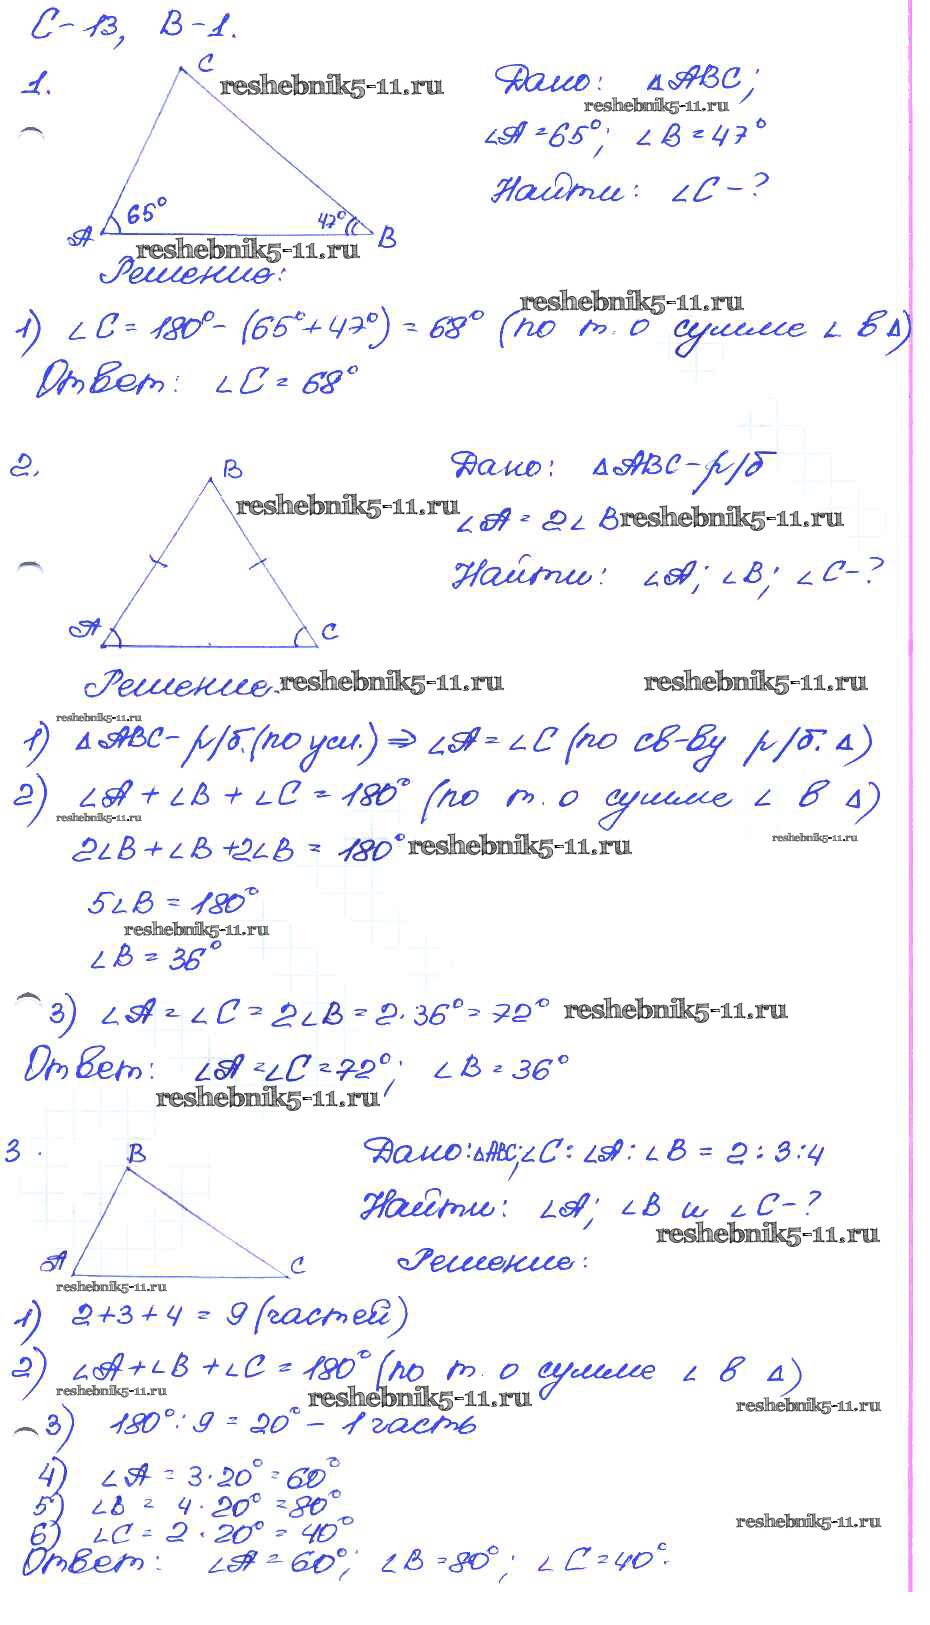 С-13, В-1.
1.
C
reshebnik5-11.ru
Дано: ∆ABC;
reshebnik5-11.ru
∠A=65°; ∠B=47°
Найти: ∠C-?
65°
47°
A
B
reshebnik5-11.ru
Решение:
reshebnik5-11.ru
1) ∠C=180°-(65°+47°)=68° (по т. о сумме ∠ в ∆)
Ответ: ∠C=68°
2.
B
reshebnik5-11.ru
Дано: ∆ABC-р/б
∠A=2∠B
reshebnik5-11.ru
Найти: ∠A; ∠B; ∠C-?
A
C
Решение.
reshebnik5-11.ru
reshebnik5-11.ru
reshebnik5-11.ru
1) ∆ABC-р/б.(по усл.)⇒∠A=∠C (по св-ву р/б. ∆)
2) ∠A+∠B+∠C=180° (по т. о сумме ∠ в ∆)
reshebnik5-11.ru
2∠B+∠B+2∠B=180°
reshebnik5-11.ru
reshebnik5-11.ru
5∠B=180°
reshebnik5-11.ru
∠B=36°
3) ∠A=∠C=2∠B=2·36°=72°
reshebnik5-11.ru
Ответ: ∠A=∠C=72°; ∠B=36°
reshebnik5-11.ru
3.
B
Дано:∆ABC;∠C:∠A:∠B=2:3:4
Найти: ∠A; ∠B и ∠C-?
reshebnik5-11.ru
A
C
Решение:
reshebnik5-11.ru
1) 2+3+4=9 (частей)
2) ∠A+∠B+∠C=180° (по т. о сумме ∠ в ∆)
reshebnik5-11.ru
reshebnik5-11.ru
reshebnik5-11.ru
3) 180°:9=20°-1 часть
4) ∠A=3·20°=60°
5) ∠B=4·20°=80°
reshebnik5-11.ru
6) ∠C=2·20°=40°
Ответ: ∠A=60°; ∠B=80°; ∠C=40°.